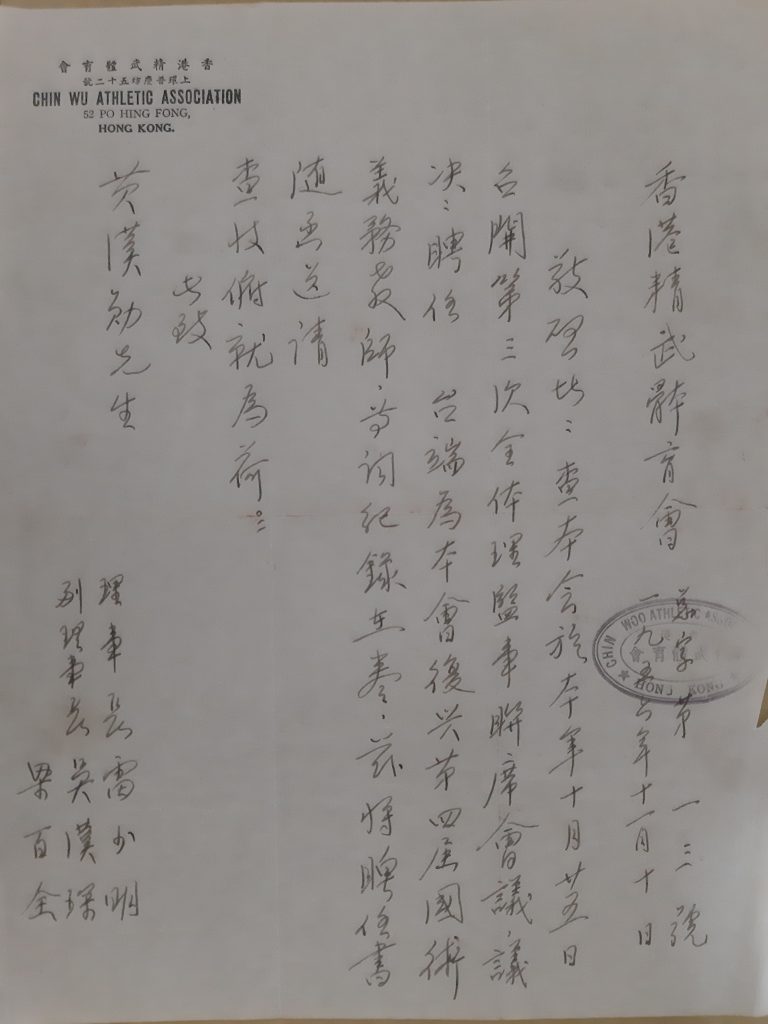 香港精武體育會
上環普慶坊五十二號
CHIN WU ATHLETIC ASSOCIATION
52 PO HING FONG,
HONG KONG.
香港精武體育會
字第一三號
一九五六年十一月十日
CHIN WOO ATHLETIC
HONG KONG
敬啓者：查本会於本年十月廿五日
召開第三次全体理監事聯席會議，議
决：聘任 台端為本會復兴第四屆國術
義務教師，等詞紀錄在卷，茲將聘任書
随函送請
查收俯就為荷。：
此致
黃漢勛先生
理事長雷少明
副理事長吳漢琛
梁百全